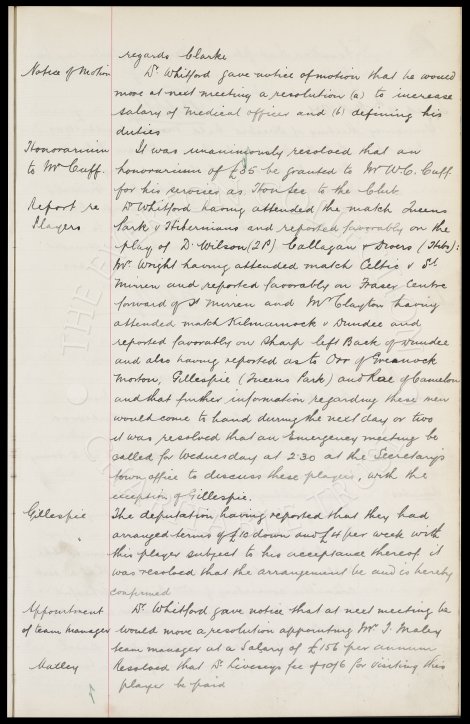 regards Clarke
Notice of Motion Dr. Whitford gave notice of motion that he would
move at next meeting a resolution (a) to increase
salary of Medical officer and (b) defining his
duties
Honorarium It was unanimously resolved that an
to Mr Cuff. honorarium of £35 be granted to Mr W.C. Cuff
for his services as Hon Sec to the Club.
Report re Dr Whitford having attended the match Queens
Players Park v Hibernians and reported favorably on the
play of D. Wilson (2P) Callagan & Divers (Hibs):
Mr. Wright having attended match Celtic v St.
Mirren and reported favorably on Fraser Centre
forward of St Mirren and Mr Clayton having
attended match Kilmarnock v Dundee and
reported favorably on Sharp left Back of Dundee
and also having reported as to Orr of Greenock
Morton, Gillespie (Queens Park) and Rae of Camelon
and that further information regarding these men
would come to hand during the next day or two
it was resolved that an Emergency meeting be
called for Wednesday at 2.30 at the Secretary's
town office to discuss these players, with the
exception of Gillespie.
Gillespie The deputation, having reported that they had
arranged terms of £10 down and £4 per week with
this player subject to his acceptance thereof it
was resolved that the arrangement be and is hereby
confirmed
Appointment Dr. Whitford gave notice that at next meeting he
of team manager would move a resolution appointing Mr. T. Maley
team manager at a salary of £156 per annum
Resolved that Dr Livesey's fee of 10/6 for visiting this
player be paid